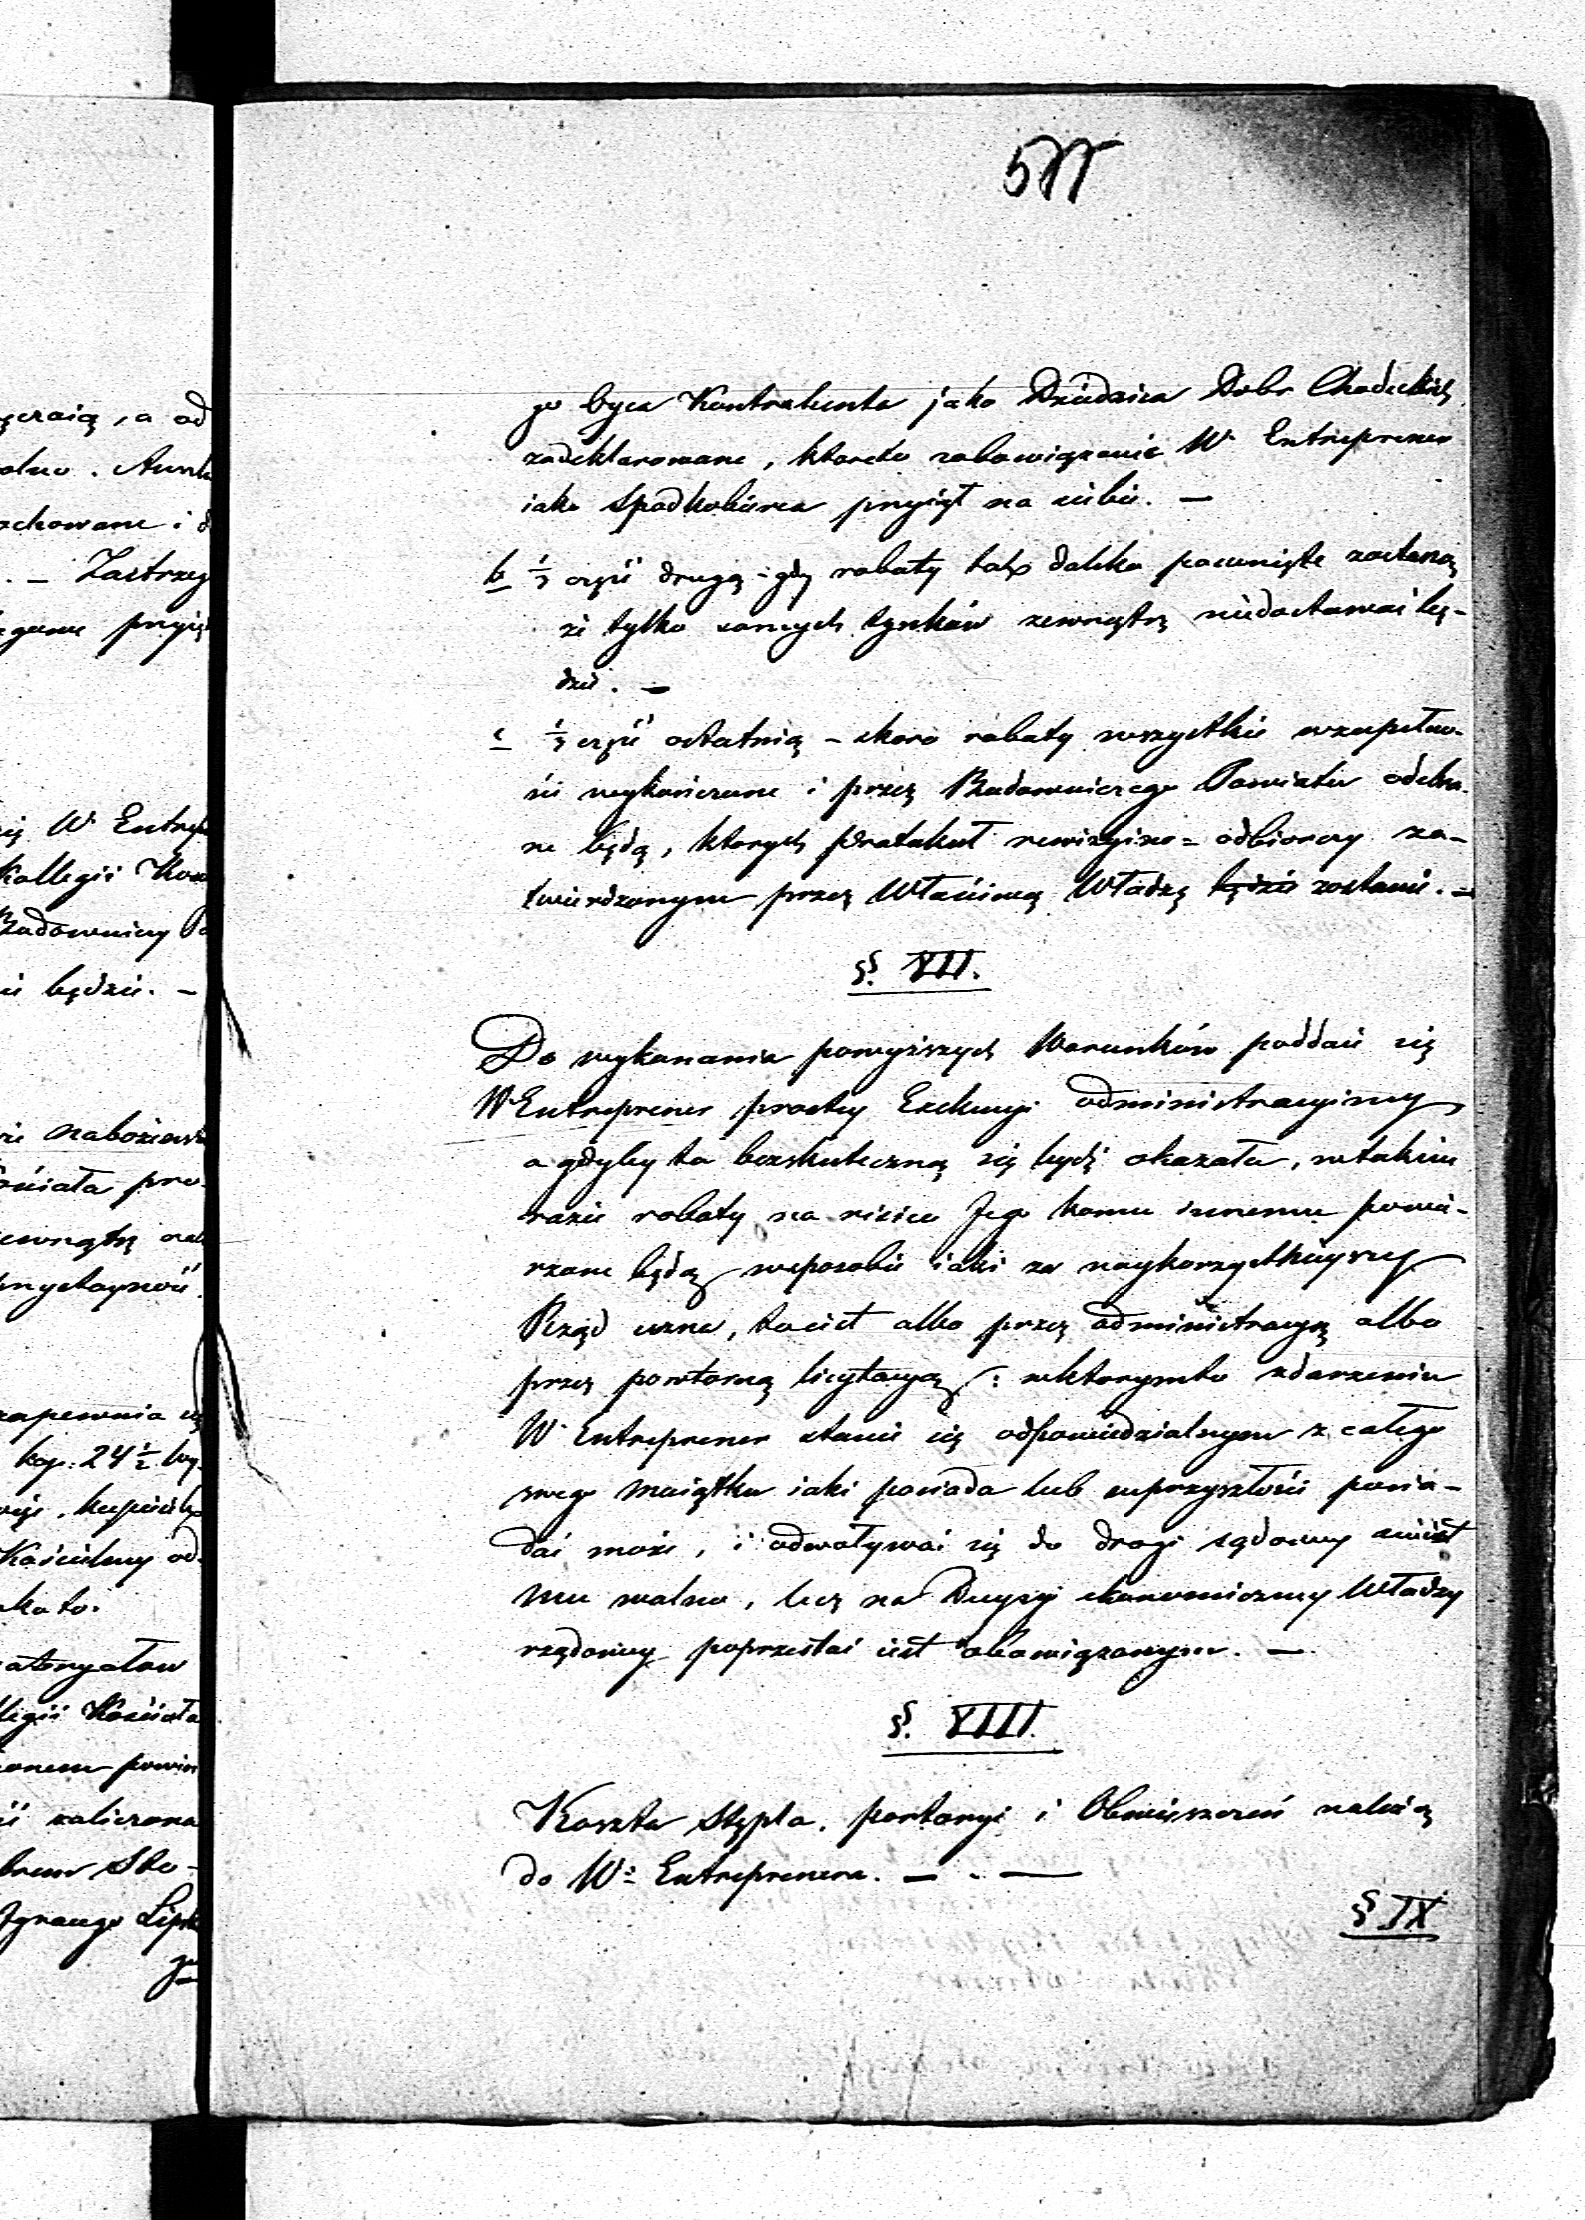 577
go byca Kontrahenta jako Dziedzica Dobr Chodeckich
zadeklarowane, ktoreto zobowiązanie W. Entreprener
iako Spadkobierca przyiął na siebie. —
b 1/3 część drugą – gdy roboty tak daleko posunięte zostaną
że tylko samych tynków zewnątrz niedostawać bę-
dzie. —
c 1/3 część ostatnią – skoro roboty wszystkie wzupełno-
ści wykończone i przez Budowniczego Powiatu odebra-
ne będą, ktorych Protokuł rewizyino = odbiorczy za-
twierdzonym przez Właściwą Władzę będzie zostanie. —
§. VII.
Do wykonania powyższych Warunków poddaie się
W Entreprener prostey Exekucyi administracyiney
a gdyby ta bezskuteczną się bydź okazała, wtakim
razie roboty na risico Jego komu innemu powie-
rzone będą wsposobie iaki za naykorzystnieyszy
Rząd uzna, toiest albo przez administracyą albo
przez powtorną licytacyą: wktorymto zdarzeniu
W. Entreprener stanie się odpowiedzialnym z całego
swego Maiątku iaki posiada lub wprzyszłości posia-
dać może, i odwoływać się do drogi sądowey nieiest
mu wolno, lecz na Decyzyi ekonomiczney Władzy
rządowey poprzestać iest obowiązanym. —
§. VIII.
Koszta Stępla, portoryi i Obwieszczeń należą
do W: Entreprenera. — . —
§ IX
ęczaią, a od
chowane i d
. – Zastrzeg
przyię
W Entrep
Kollegii Kos
Budowniczy Po
będzie. –
nabożeńs
zapewnia
kop: 24 1/2
Kościelny od
Kościoła
powin
zaliczona
Sto-
Ignacego Lipsk
go